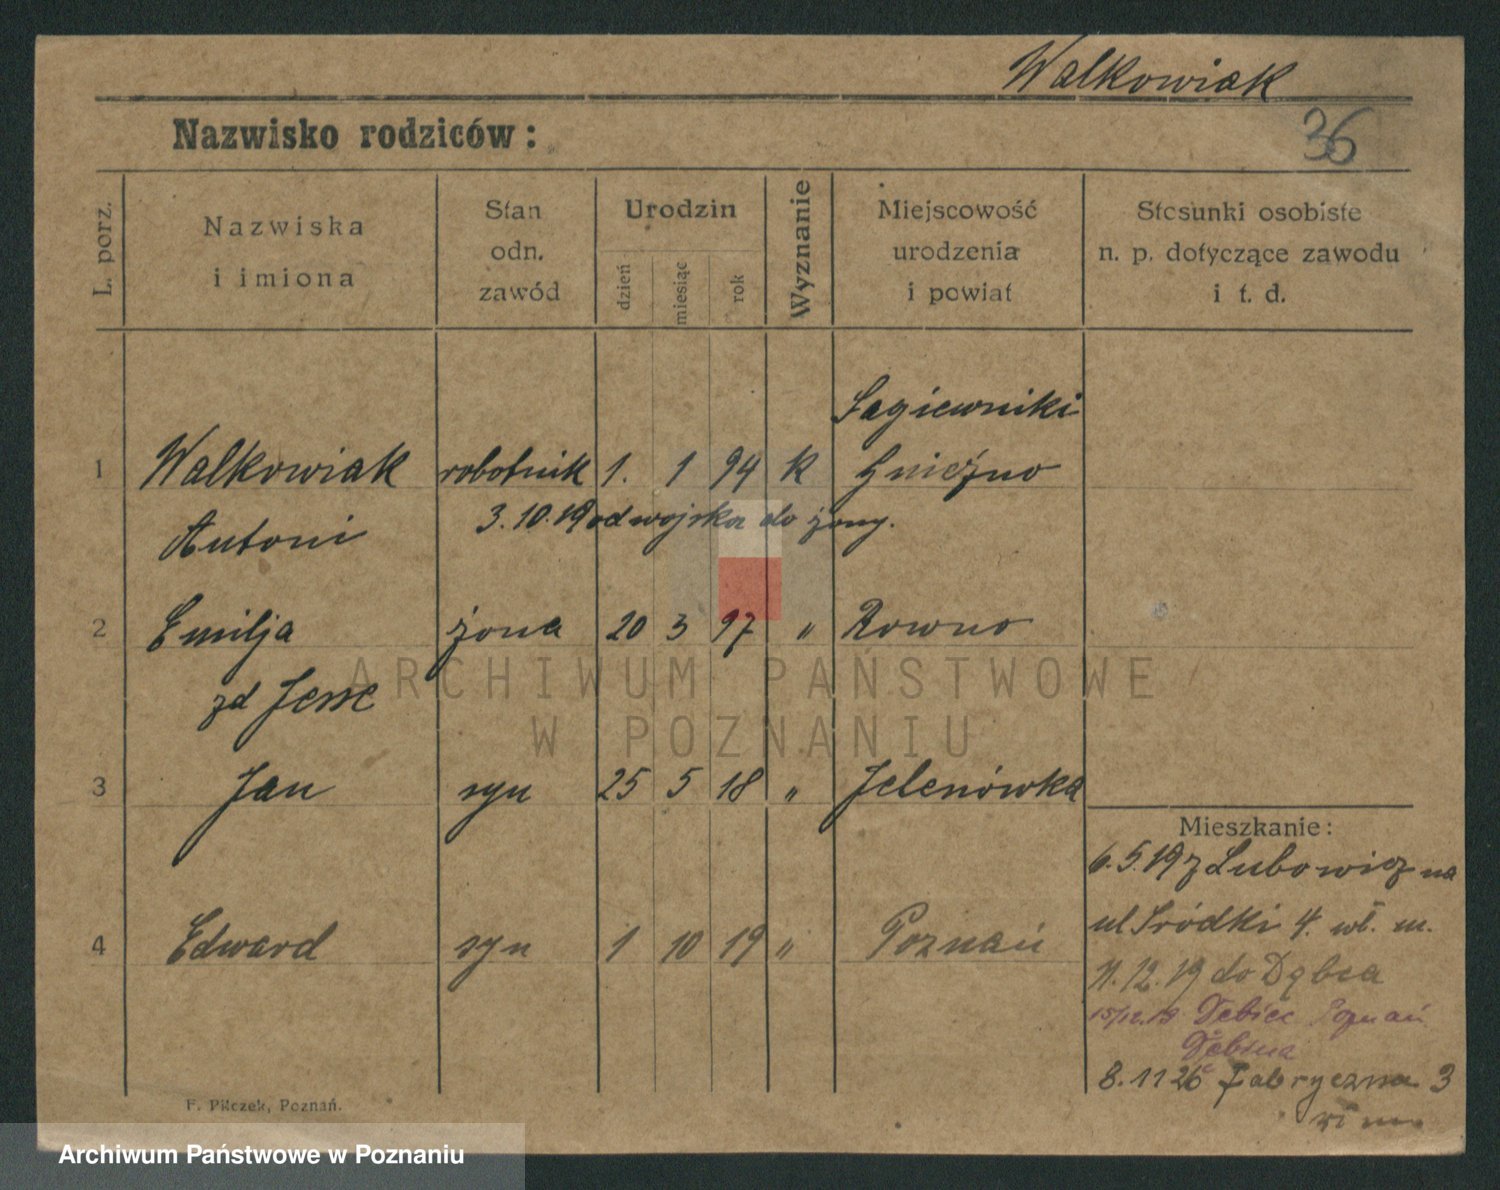 Walkowiak
36
Nazwisko rodziców:
L. porz.
Nazwiska
i imiona
Stan
odn.
zawód
Urodzin
dzień
miesiąc
rok
Wyznanie
Miejscowość
urodzenia
i powiat
Stosunki osobiste
n. p. dotyczące zawodu
i t. d.
Łagiewniki
1 Walkowiak robotnik 1. 1 94 k Gniezno
3.10.19 od wojska do żony.
Antoni
2 Emilja żona 20 3 97 " Rowno
zd Jesse
ARCHIWUM PAŃSTWOWE
W POZNANIU
3 Jan syn 25 5 18 " Jelenówka
Mieszkanie:
6.5.19 z Lubowicz na
ul Śródki 4. wł. m.
4 Edward syn 1 10 19 " Poznań
11.12.19 do Dębca
15/12.19 Dębiec Poznań
Dębina
8.11 26 Fabryczna 3
wł m.
F. Pilczek, Poznań.
Archiwum Państwowe w Poznaniu